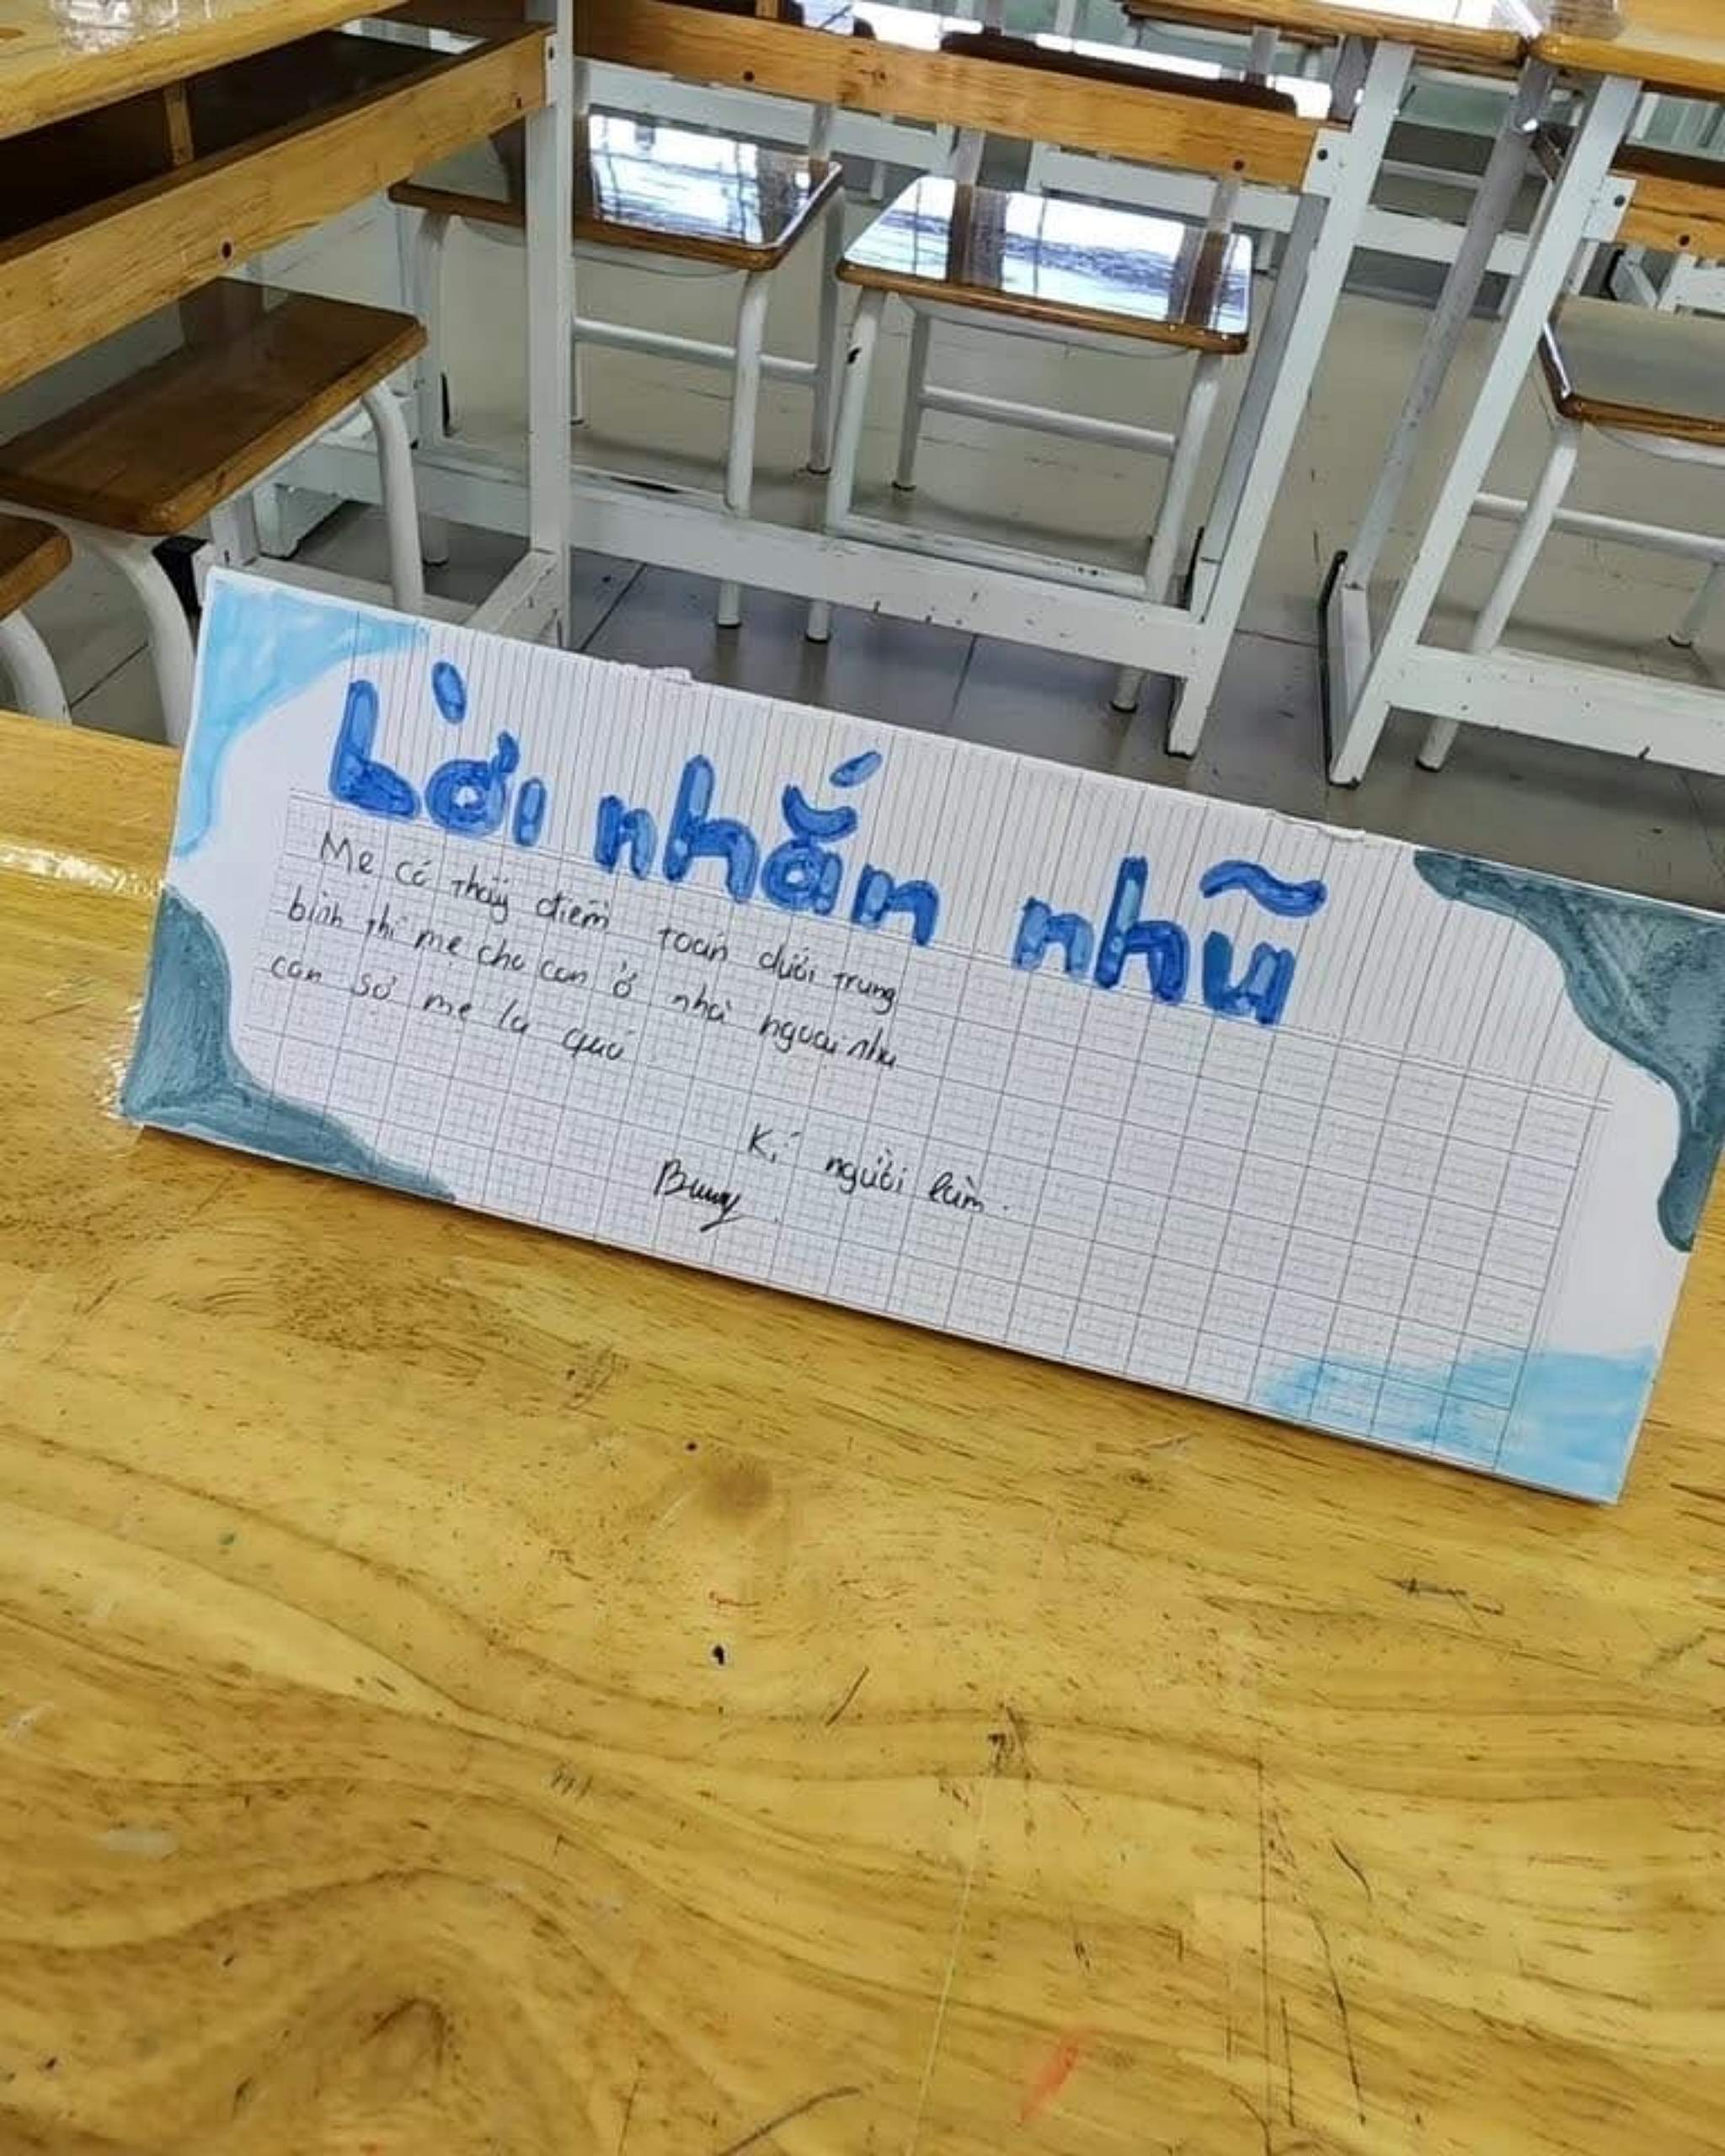 Lời nhắn nhũ
Mẹ có thấy điểm toán dưới trung
bình thì mẹ cho con ở nhà ngoại nha
con sợ mẹ la quá
Kí người làm.